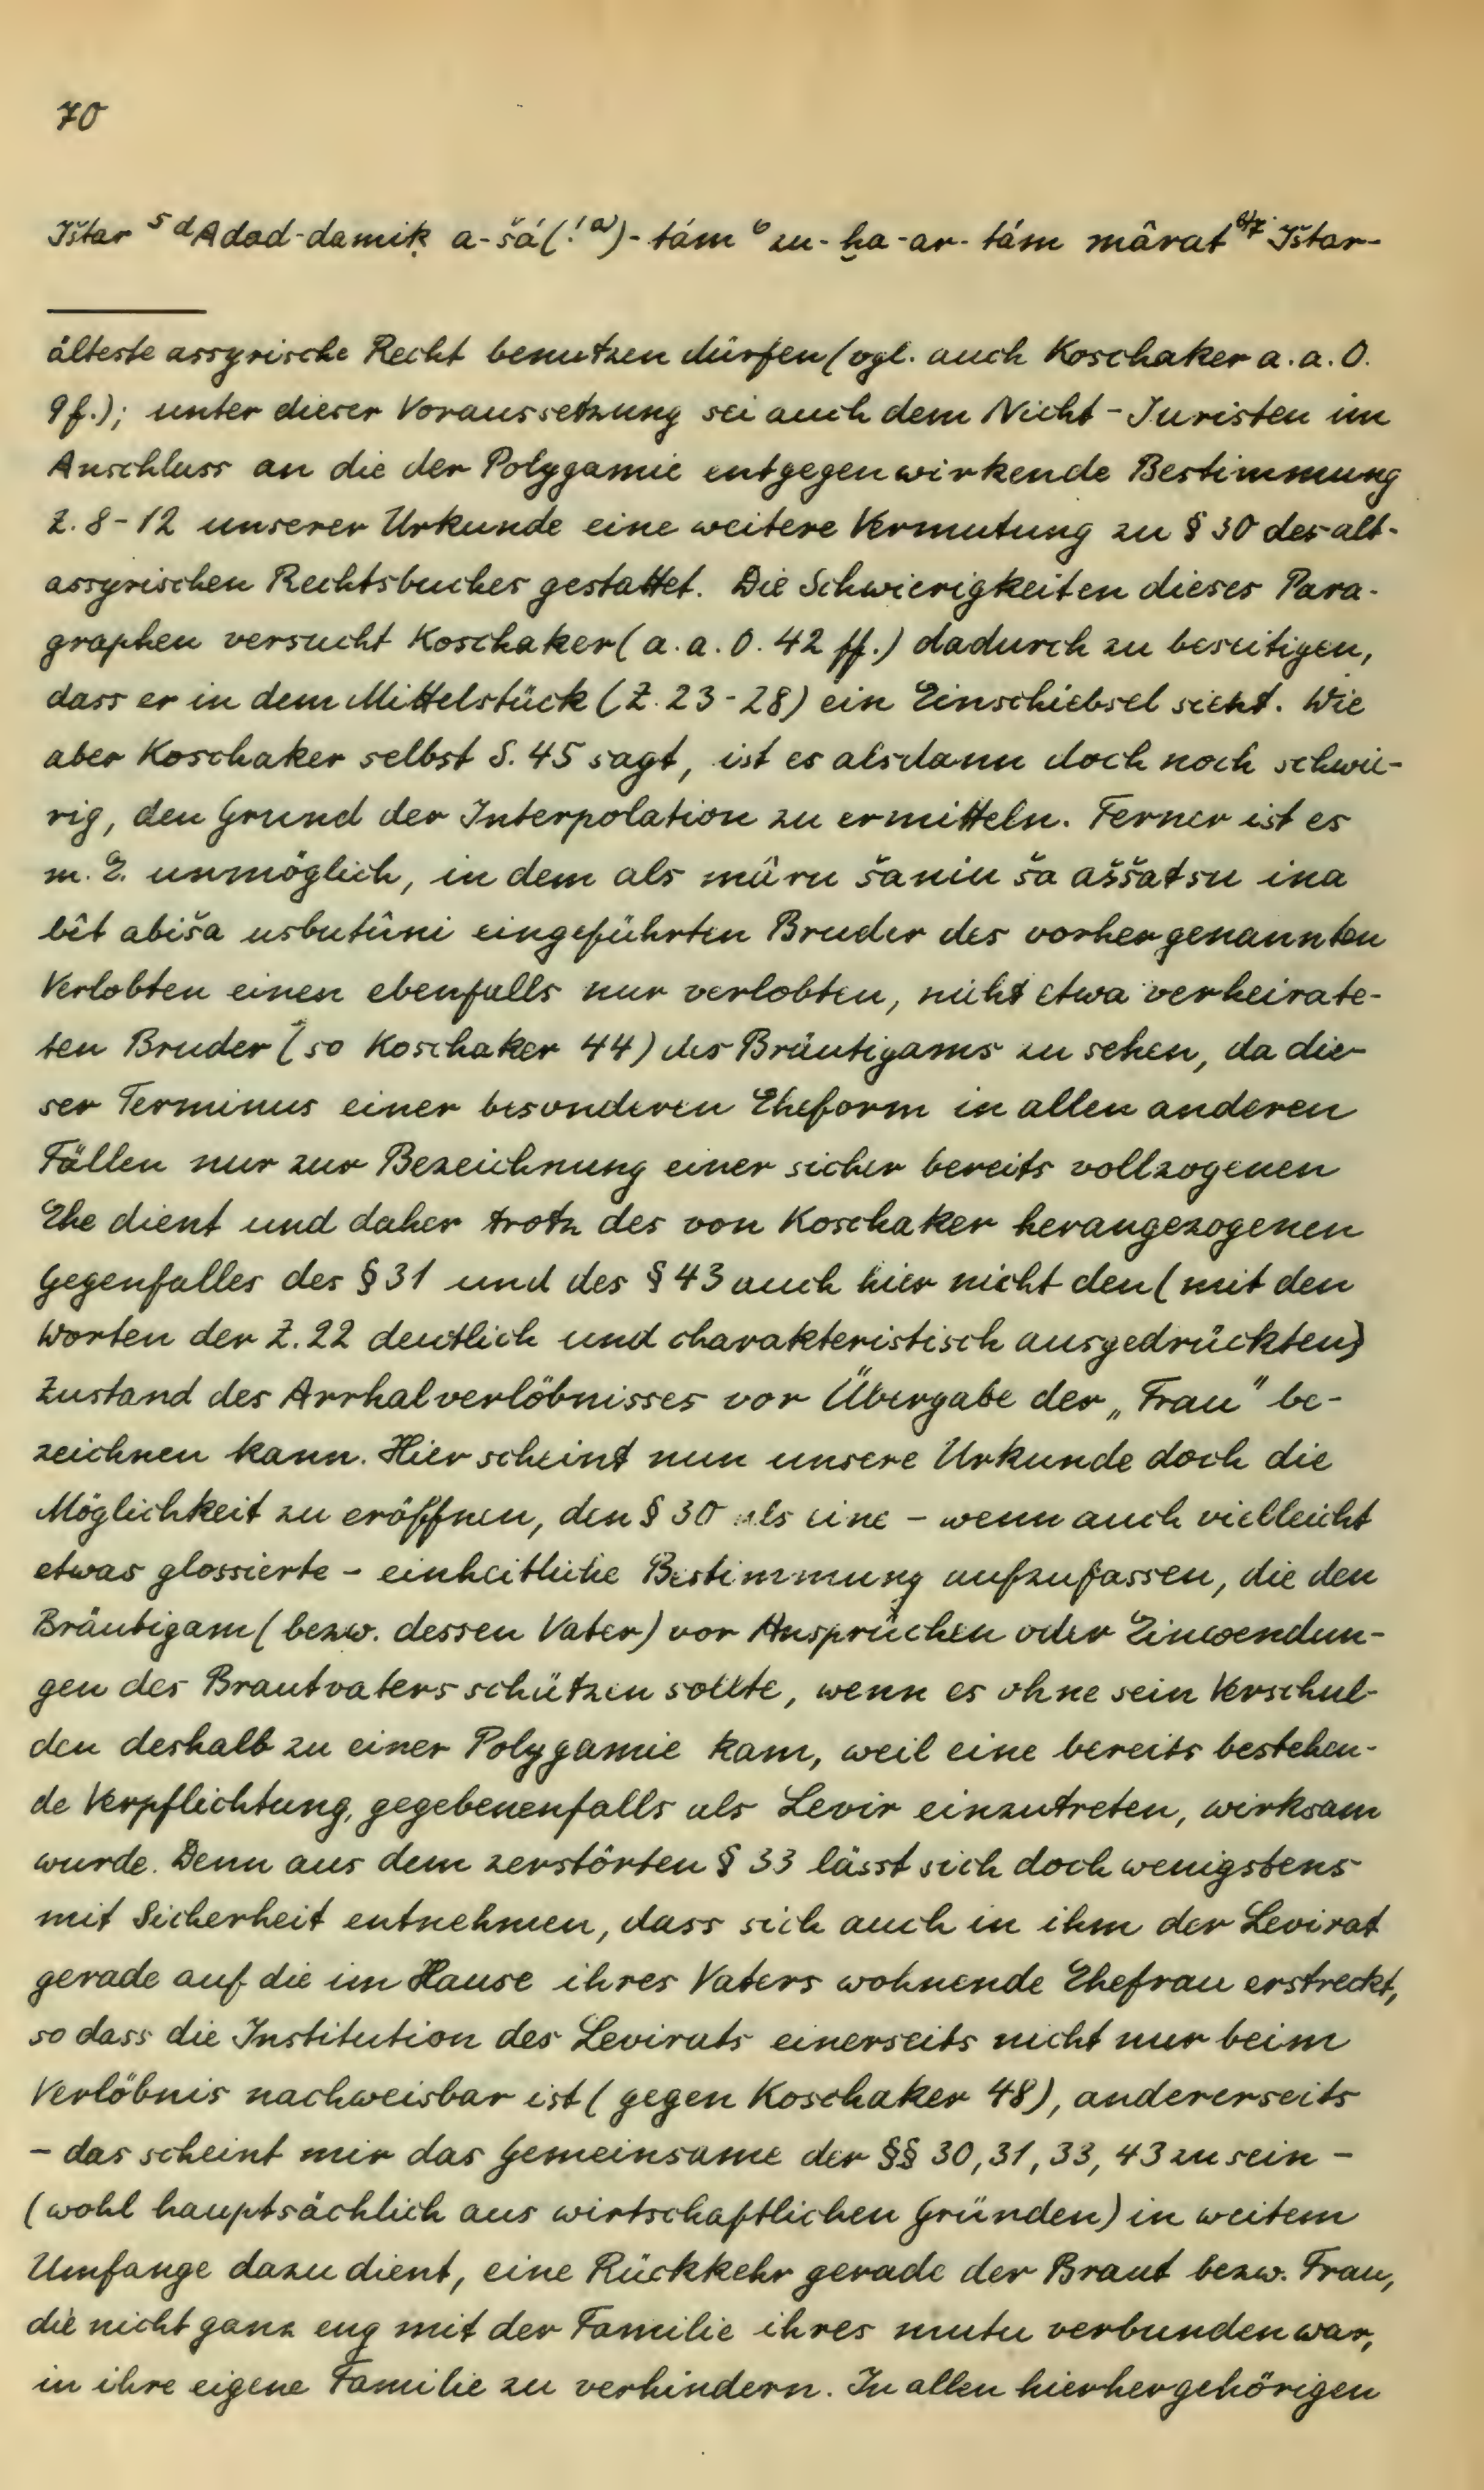 70
Ištar ⁵ ᵈAdad-damiḳ a-šá(!ᵃ⁾)-tám ⁶ zu-ḫa-ar-tám mârat ⁶/⁷ Ištar-
älteste assyrische Recht benutzen dürfen (vgl. auch Koschaker a. a. O.
9f.); unter dieser Voraussetzung sei auch dem Nicht-Juristen im
Anschluss an die der Polygamie entgegenwirkende Bestimmung
Z. 8-12 unserer Urkunde eine weitere Vermutung zu § 30 des alt-
assyrischen Rechtsbuches gestattet. Die Schwierigkeiten dieses Para-
graphen versucht Koschaker (a. a. O. 42 ff.) dadurch zu beseitigen,
dass er in dem Mittelstück (Z. 23-28) ein Einschiebsel sieht. Wie
aber Koschaker selbst S. 45 sagt, ist es alsdann doch noch schwie-
rig, den Grund der Interpolation zu ermitteln. Ferner ist es
m. E. unmöglich, in dem als mâru šaniu ša aššatsu ina
bît abiša usbutûni eingeführten Bruder des vorher genannten
Verlobten einen ebenfalls nur verlobten, nicht etwa verheirate-
ten Bruder (so Koschaker 44) des Bräutigams zu sehen, da die-
ser Terminus einer besonderen Eheform in allen anderen
Fällen nur zur Bezeichnung einer sicher bereits vollzogenen
Ehe dient und daher trotz des von Koschaker herangezogenen
Gegenfalles des § 31 und des § 43 auch hier nicht den (mit den
Worten der Z. 22 deutlich und charakteristisch ausgedrückten)
Zustand des Arrhalverlöbnisses vor Übergabe der „Frau" be-
zeichnen kann. Hier scheint nun unsere Urkunde doch die
Möglichkeit zu eröffnen, den § 30 als eine – wenn auch vielleicht
etwas glossierte – einheitliche Bestimmung aufzufassen, die den
Bräutigam (bezw. dessen Vater) vor Ansprüchen oder Einwendun-
gen des Brautvaters schützen sollte, wenn es ohne sein Verschul-
den deshalb zu einer Polygamie kam, weil eine bereits bestehen-
de Verpflichtung, gegebenenfalls als Levir einzutreten, wirksam
wurde. Denn aus dem zerstörten § 33 lässt sich doch wenigstens
mit Sicherheit entnehmen, dass sich auch in ihm der Levirat
gerade auf die im Hause ihres Vaters wohnende Ehefrau erstreckt,
so dass die Institution des Levirats einerseits nicht nur beim
Verlöbnis nachweisbar ist (gegen Koschaker 48), andererseits
– das scheint mir das Gemeinsame der §§ 30, 31, 33, 43 zu sein –
(wohl hauptsächlich aus wirtschaftlichen Gründen) in weitem
Umfange dazu dient, eine Rückkehr gerade der Braut bezw. Frau,
die nicht ganz eng mit der Familie ihres mutu verbunden war,
in ihre eigene Familie zu verhindern. In allen hierhergehörigen